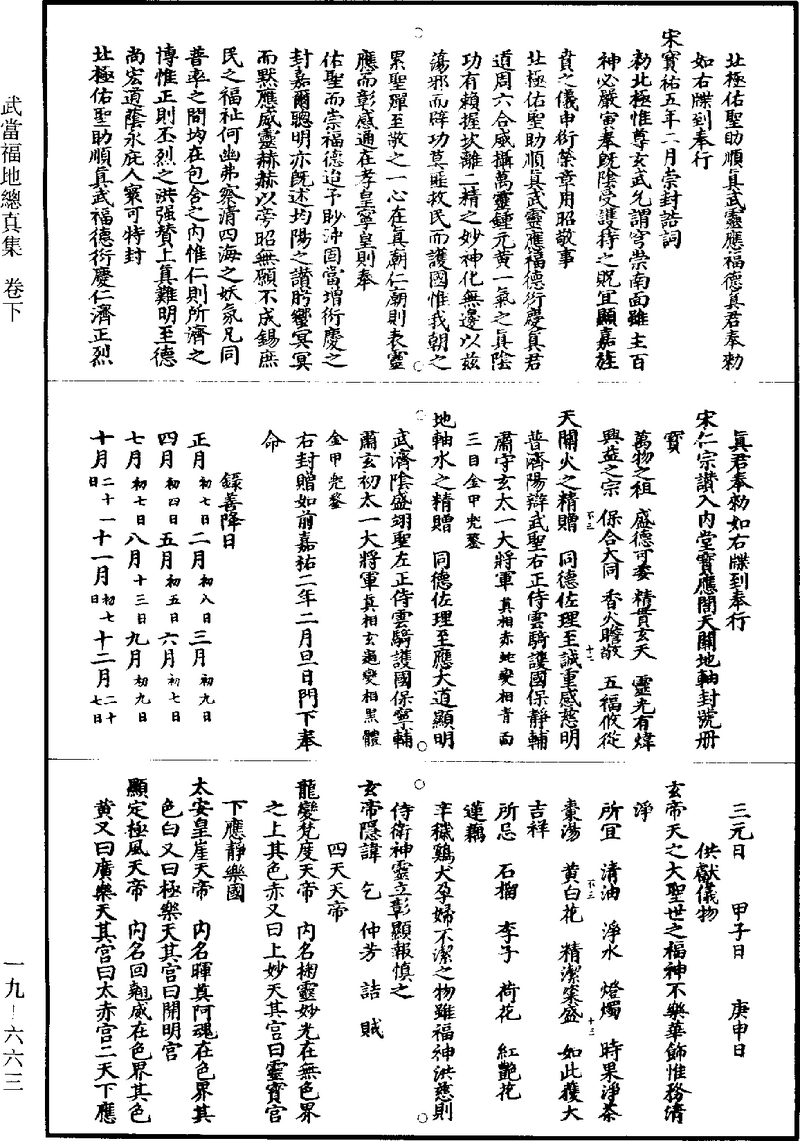 武當福地總真集　卷下
一九—六六三
北極佑聖助順真武靈應福德真君奉勑
如右牒到奉行
宋寶祐五年二月崇封誥詞
勑北極惟尊玄武允謂宮崇南面雖主百
神必嚴寅奉旣陰受護持之貺宜顯嘉旌
賁之儀申衍榮章用昭敬事
北極佑聖助順真武靈應福德衍慶真君
道周六合威攝萬靈鍾元黃一氣之真陰
功有賴握坎離二精之妙神化無邊以兹
蕩邪而辟功莫雖救民而護國惟我朝之
累聖殫至敬之一心在真廟仁廟則表靈
應而彰感通在孝皇寧皇則奉
佑聖而崇福德迨予眇沖固當增衍慶之
封嘉爾聰明亦旣述均陽之讚肹蠁冥冥
而默應威靈赫赫以旁昭無願不成錫庶
民之福祉何幽弗察清四海之妖氛凡同
普率之間均在包含之內惟仁則所濟之
博惟正則丕烈之洪强贊上真難明至德
尚宏道蔭永庇人寰可特封
北極佑聖助順真武福德衍慶仁濟正烈
真君奉勑如右牒到奉行
宋仁宗讚入內堂寶應閣天關地軸封號册
寶
萬物之祖　盛德可委　精貫玄天　靈光有煒
興益之宗　保合大同　香火瞻敬　五福攸從
天關火之精贈　同德佐理至誠重感慈明
普濟陽辯武聖右正侍雲騎護國保静輔
肅守玄太一大將軍真相赤蛇變相青面
三目金甲兜鍪
地軸水之精贈　同德佐理至應大道顯明
武濟陰盛翊聖左正侍雲騎護國保寧輔
肅玄初太一大將軍真相玄龜變相黑體
金甲兜鍪
右封贈如前嘉祐二年二月旦日門下奉
命
錄善降日
正月初七日二月初八日三月初九日
四月初四日五月初五日六月初七日
七月初七日八月十三日九月初九日
十月二十一日十一月初七日十二月二十七日
三元日　甲子日　庚申日
供獻儀物
玄帝天之大聖世之福神不樂華飾惟務清
淨
所宜　清油　淨水　燈燭　時果淨茶
棗湯　黃白花　精潔粢盛　如此獲大
吉祥
所忌　石榴　李子　荷花　紅艷花
蓮藕
辛穢鷄犬孕婦不潔之物雖福神洪慈則
侍衛神靈立彰顯報慎之
玄帝隱諱　乞　仲芳　詰　賊
四天天帝
龍變梵度天帝　內名椈靈妙光在無色界
之上其色赤又曰上妙天其宮曰靈寶宮
下應靜樂國
太安皇崖天帝　內名暉真阿魂在色界其
色白又曰極樂天其宮曰開明宮
顯定極風天帝　內名回翹威在色界其色
黃又曰廣樂天其宮曰太赤宮二天下應